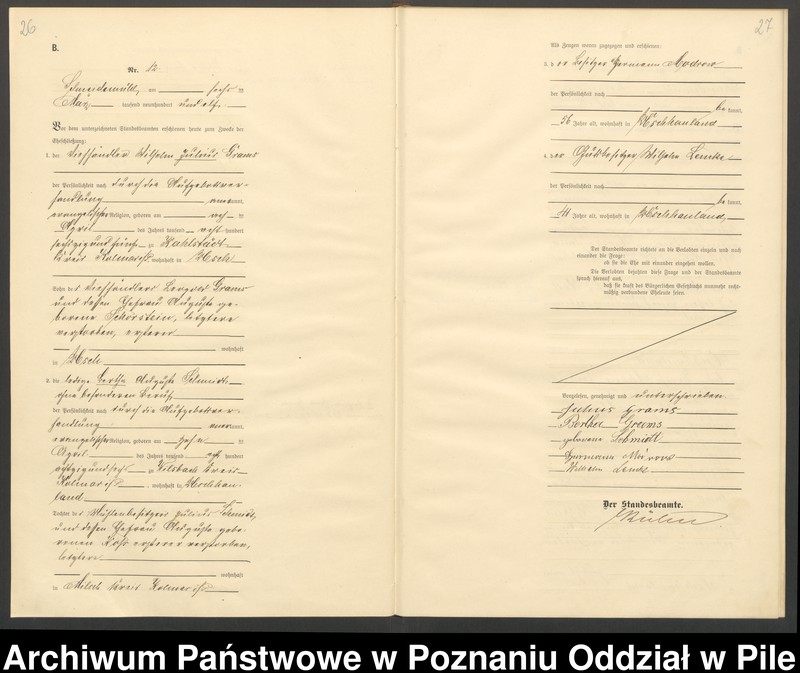 26
B.
Nr. 12.
Schneidemühl, am sechs ten
Mai tausend neunhundert und elf
Vor dem unterzeichneten Standesbeamten erschienen heute zum Zwecke der
Eheschließung:
1. der Viehhändler Wilhelm Julius Grams
der Persönlichkeit nach durch die Aufgebotsver-
handlung anerkannt,
evangelischer Religion, geboren am
April des Jahres tausend acht hundert
zu Kahlstädt
Kreis Kolmar i/P., wohnhaft in Usch
Sohn des Viehhändlers Grams
und dessen Ehefrau Auguste ge-
borene letztere
verstorben, ersterer
wohnhaft
in Usch
2. die ledige Bertha Auguste Schmidt,
ohne besonderen Beruf
der Persönlichkeit nach durch die Aufgebotsver-
handlung anerkannt,
evangelischer Religion, geboren am zehn ten
April des Jahres tausend acht hundert
achtzigundsechs zu Kreis
Kolmar i/P., wohnhaft in Uschhau-
land
Tochter des Mühlenbesitzers Julius Schmidt,
und dessen Ehefrau Auguste gebo-
renen ersterer verstorben,
letztere
wohnhaft
in Kreis Kolmar i/P.
27
Als Zeugen waren zugezogen und erschienen:
3. der Besitzer Hermann
der Persönlichkeit nach
be kannt,
56 Jahre alt, wohnhaft in Uschhauland
4. der Gutsbesitzer Wilhelm Lemke
der Persönlichkeit nach
be kannt,
41 Jahre alt, wohnhaft in Uschhauland,
Der Standesbeamte richtete an die Verlobten einzeln und nach
einander die Frage:
ob sie die Ehe mit einander eingehen wollen.
Die Verlobten bejahten diese Frage und der Standesbeamte
sprach hierauf aus,
daß sie kraft des Bürgerlichen Gesetzbuchs nunmehr recht-
mäßig verbundene Eheleute seien.
Vorgelesen, genehmigt und unterschrieben
Julius Grams
Bertha Grams
geborene Schmidt
Hermann
Wilhelm Lemke
Der Standesbeamte.
Archiwum Państwowe w Poznaniu Oddział w Pile